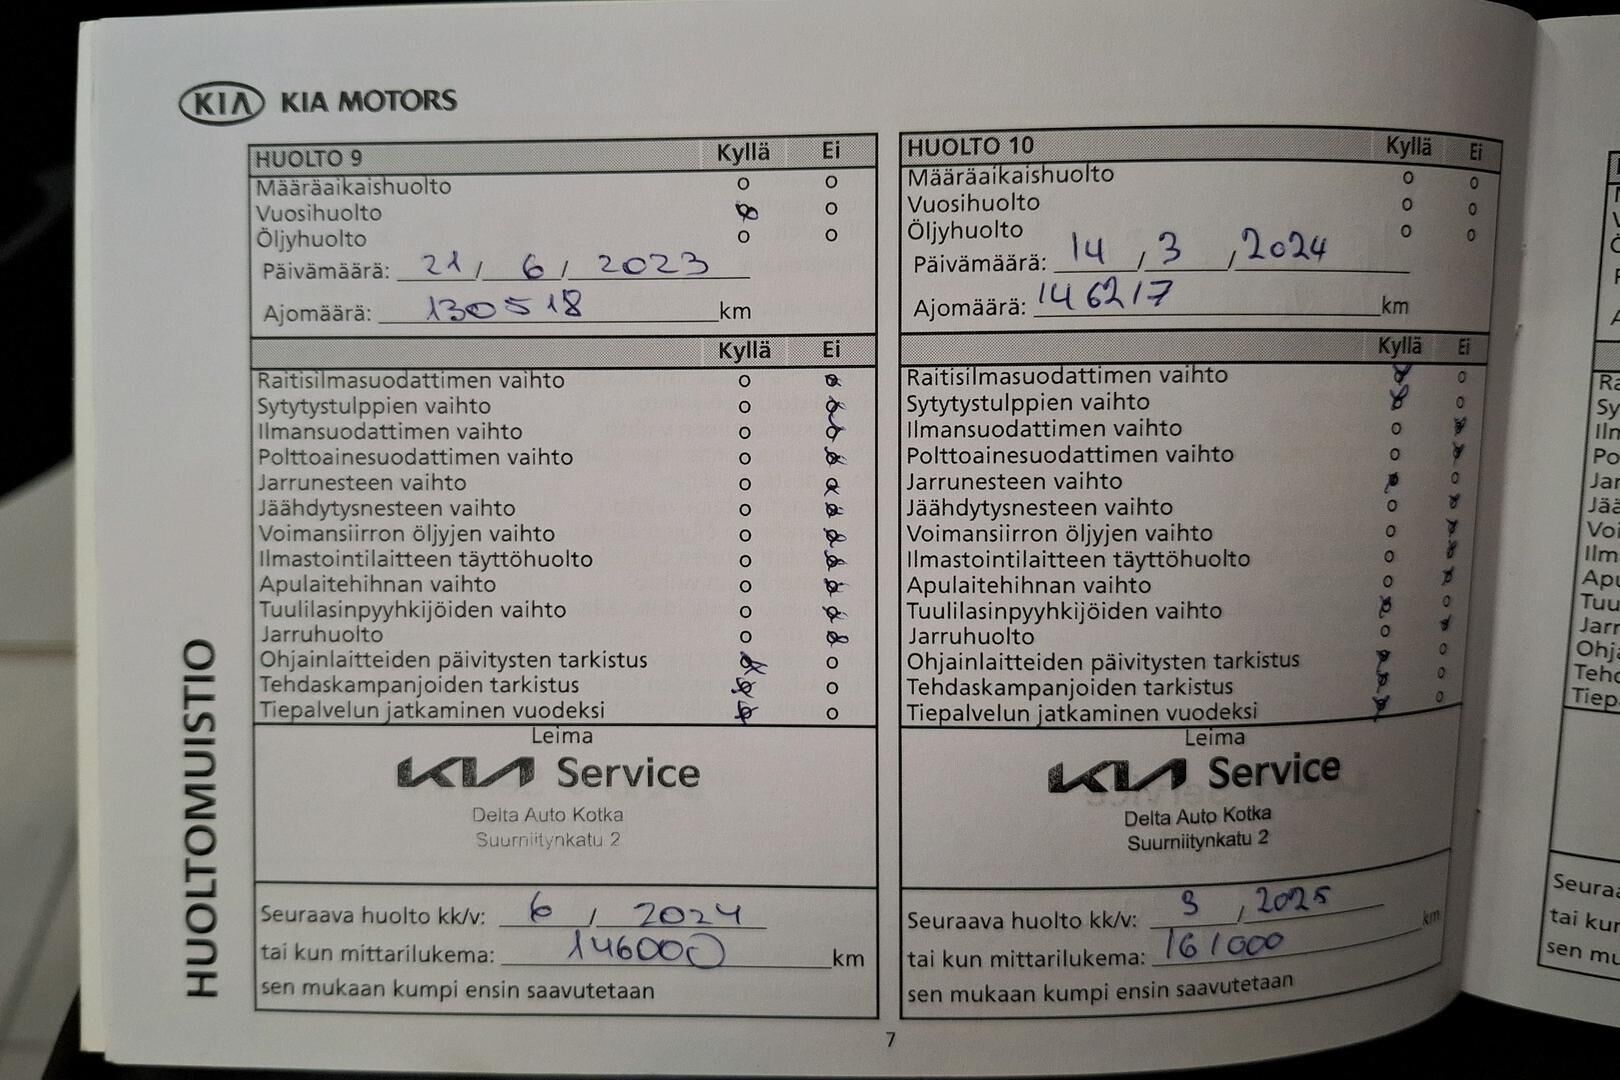 KIA KIA MOTORS
HUOLTOMUISTIO
HUOLTO 9 Kyllä Ei
Määräaikaishuolto o o
Vuosihuolto o o
Öljyhuolto o o
Päivämäärä: 21 / 6 / 2023
Ajomäärä: 130518 km
Kyllä Ei
Raitisilmasuodattimen vaihto o o
Sytytystulppien vaihto o o
Ilmansuodattimen vaihto o o
Polttoainesuodattimen vaihto o o
Jarrunesteen vaihto o o
Jäähdytysnesteen vaihto o o
Voimansiirron öljyjen vaihto o o
Ilmastointilaitteen täyttöhuolto o o
Apulaitehihnan vaihto o o
Tuulilasinpyyhkijöiden vaihto o o
Jarruhuolto o o
Ohjainlaitteiden päivitysten tarkistus o o
Tehdaskampanjoiden tarkistus o o
Tiepalvelun jatkaminen vuodeksi o o
Leima
KIA Service
Delta Auto Kotka
Suurniitynkatu 2
Seuraava huolto kk/v: 6 / 2024
tai kun mittarilukema: 146000 km
sen mukaan kumpi ensin saavutetaan
HUOLTO 10 Kyllä Ei
Määräaikaishuolto o o
Vuosihuolto o o
Öljyhuolto o o
Päivämäärä: 14 / 3 / 2024
Ajomäärä: 146217 km
Kyllä Ei
Raitisilmasuodattimen vaihto o o
Sytytystulppien vaihto o o
Ilmansuodattimen vaihto o o
Polttoainesuodattimen vaihto o o
Jarrunesteen vaihto o o
Jäähdytysnesteen vaihto o o
Voimansiirron öljyjen vaihto o o
Ilmastointilaitteen täyttöhuolto o o
Apulaitehihnan vaihto o o
Tuulilasinpyyhkijöiden vaihto o o
Jarruhuolto o o
Ohjainlaitteiden päivitysten tarkistus o o
Tehdaskampanjoiden tarkistus o o
Tiepalvelun jatkaminen vuodeksi o o
Leima
KIA Service
Delta Auto Kotka
Suurniitynkatu 2
Seuraava huolto kk/v: 3 / 2025
tai kun mittarilukema: 161000 km
sen mukaan kumpi ensin saavutetaan
7